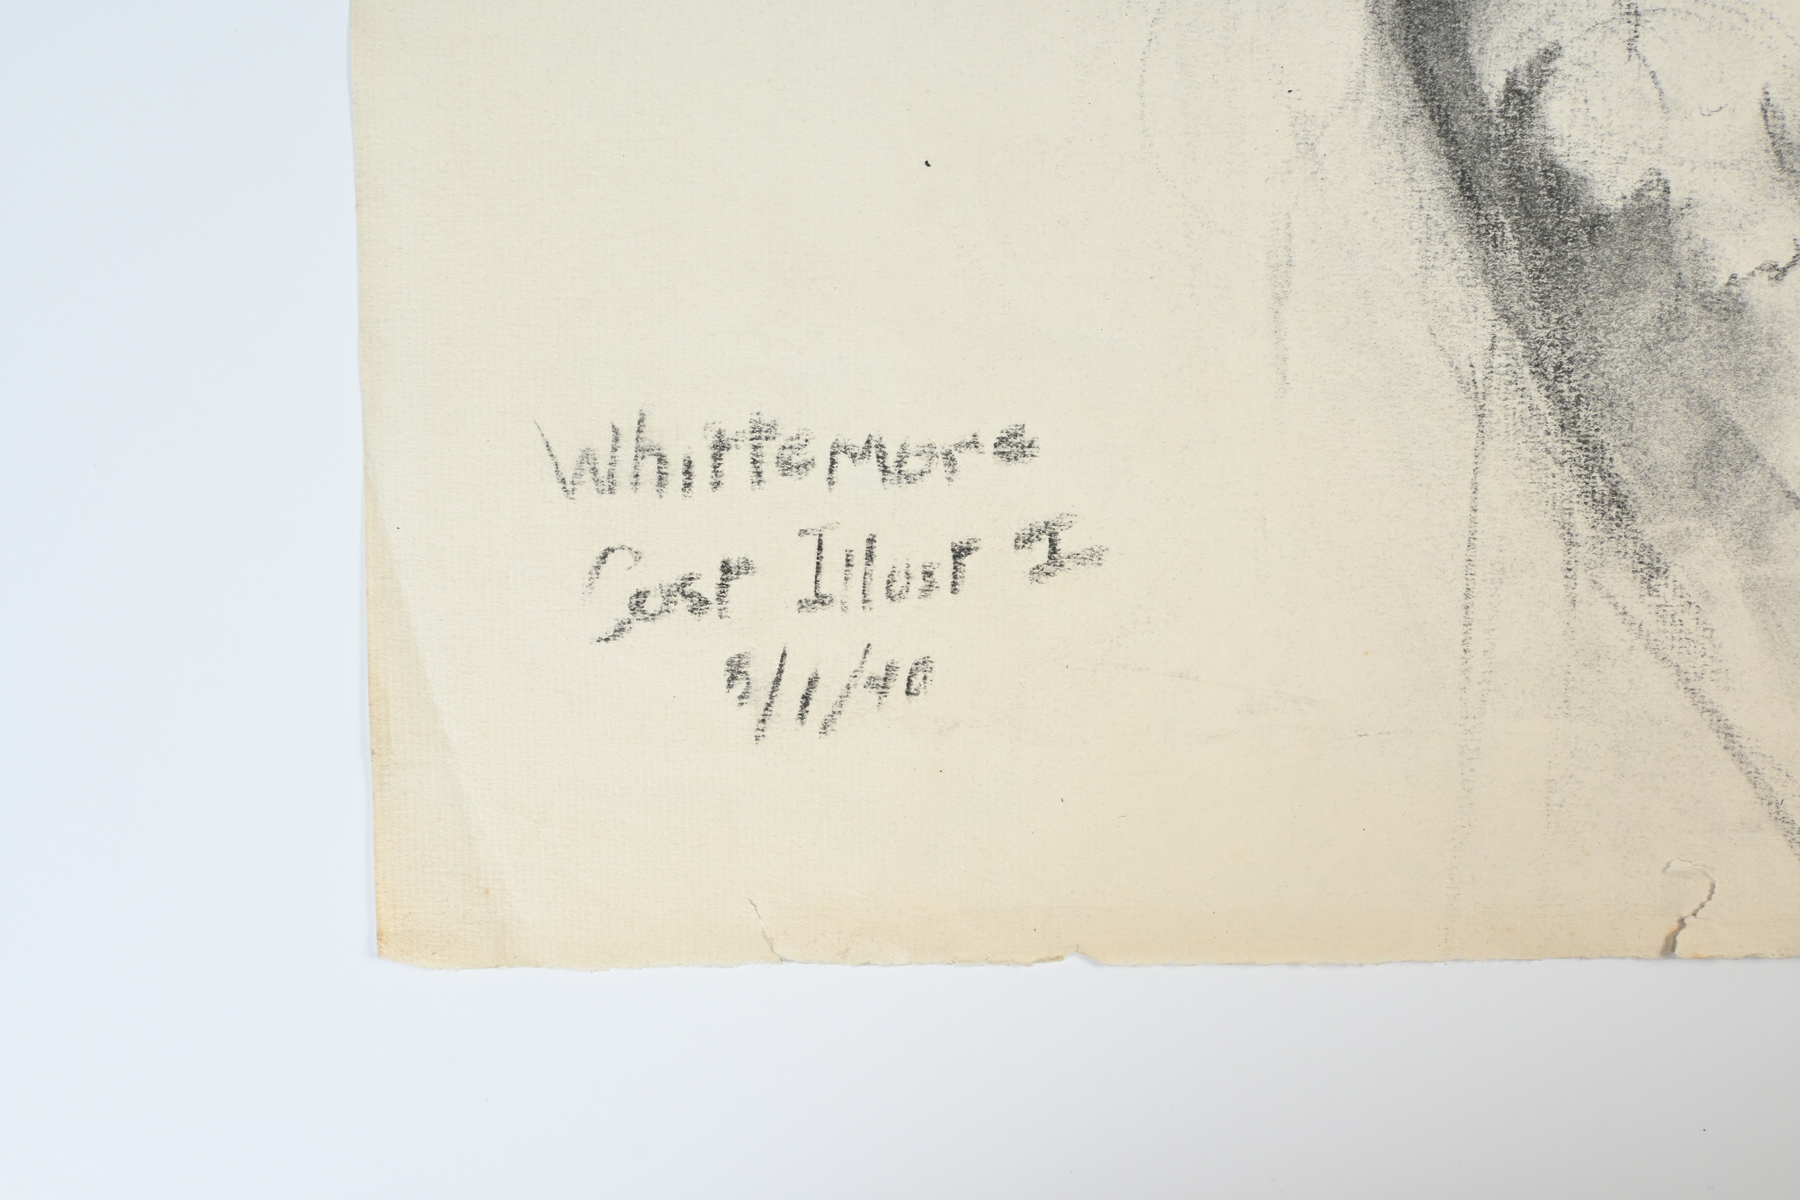 Whittemore
Cost Illust I
5/1/40